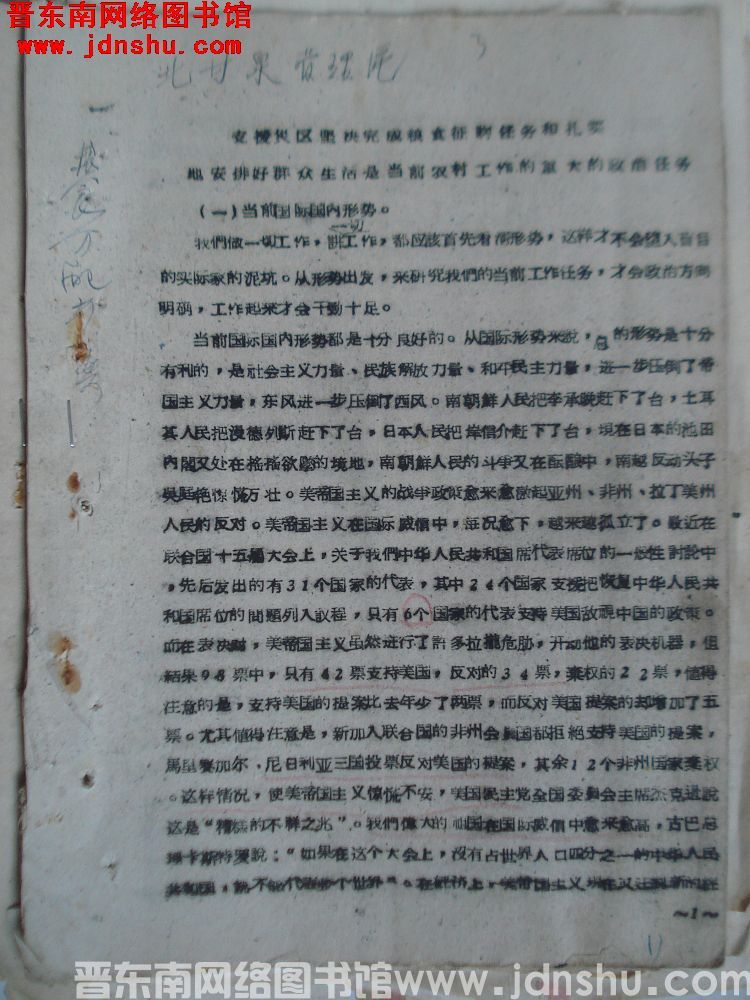 晋东南网络图书馆
www.jdnshu.com
3
支援灾区坚决完成粮食征购任务和扎实
地安排好群众生活是当前农村工作的重大的政治任务
(一)当前国际国内形势。
一切
我們做一切工作,訓工作,都应該首先看清形势,这样才不会堕入盲目
的实际家的泥坑。从形势出发,来研究我們的当前工作任务,才会政治方向
明确,工作起来才会干勁十足。
当前国际国内形势都是十分良好的。从国际形势来說,的形势是十分
有利的,是社会主义力量、民族解放力量、和平民主力量,进一步压倒了帝
国主义力量,东风进一步压倒了西风。南朝鮮人民把李承晚赶下了台,土耳
其人民把漫德列斯赶下了台,日本人民把岸信介赶下了台,現在日本的池田
内閣又处在搖搖欲墜的境地,南朝鮮人民的斗爭又在酝酿中,南越反动头子
吳庭艳惊慌万壮。美帝国主义的战爭政策愈来愈激起亚州、非州、拉丁美州
人民的反对。美帝国主义在国际威信中,每况愈下,越来越孤立了。最近在
联合国十五屆大会上,关于我們中华人民共和国席代表席位的一般性討論中
,先后发出的有31个国家的代表,其中24个国家支援把恢复中华人民共
和国席位的問題列入議程,只有6个国家的代表支持美国敌視中国的政策。
而在表决时,美帝国主义虽然进行了許多拉攏危胁,开动他的表决机器,但
結果98票中,只有42票支持美国,反对的34票,棄权的22票,值得
注意的是,支持美国的提案比去年少了两票,而反对美国提案的却增加了五
票。尤其值得注意是,新加入联合国的非州会員国都拒絕支持美国的提案,
馬里賽加尔、尼日利亚三国投票反对美国的提案,其余12个非州国家棄权
。这样情况,使美帝国主义惊慌不安,美国民主党全国委員会主席杰克逊說
这是“糟糕的不祥之兆”。我們偉大的祖国在国际威信中愈来愈高,古巴总
理卡斯特罗說:“如果在这个大会上,沒有占世界人口四分之一的中华人民
共和国,就不能代表整个世界”。在經济上,美帝国主义現在又迁到新的經
~1~
晋东南网络图书馆www.jdnshu.com